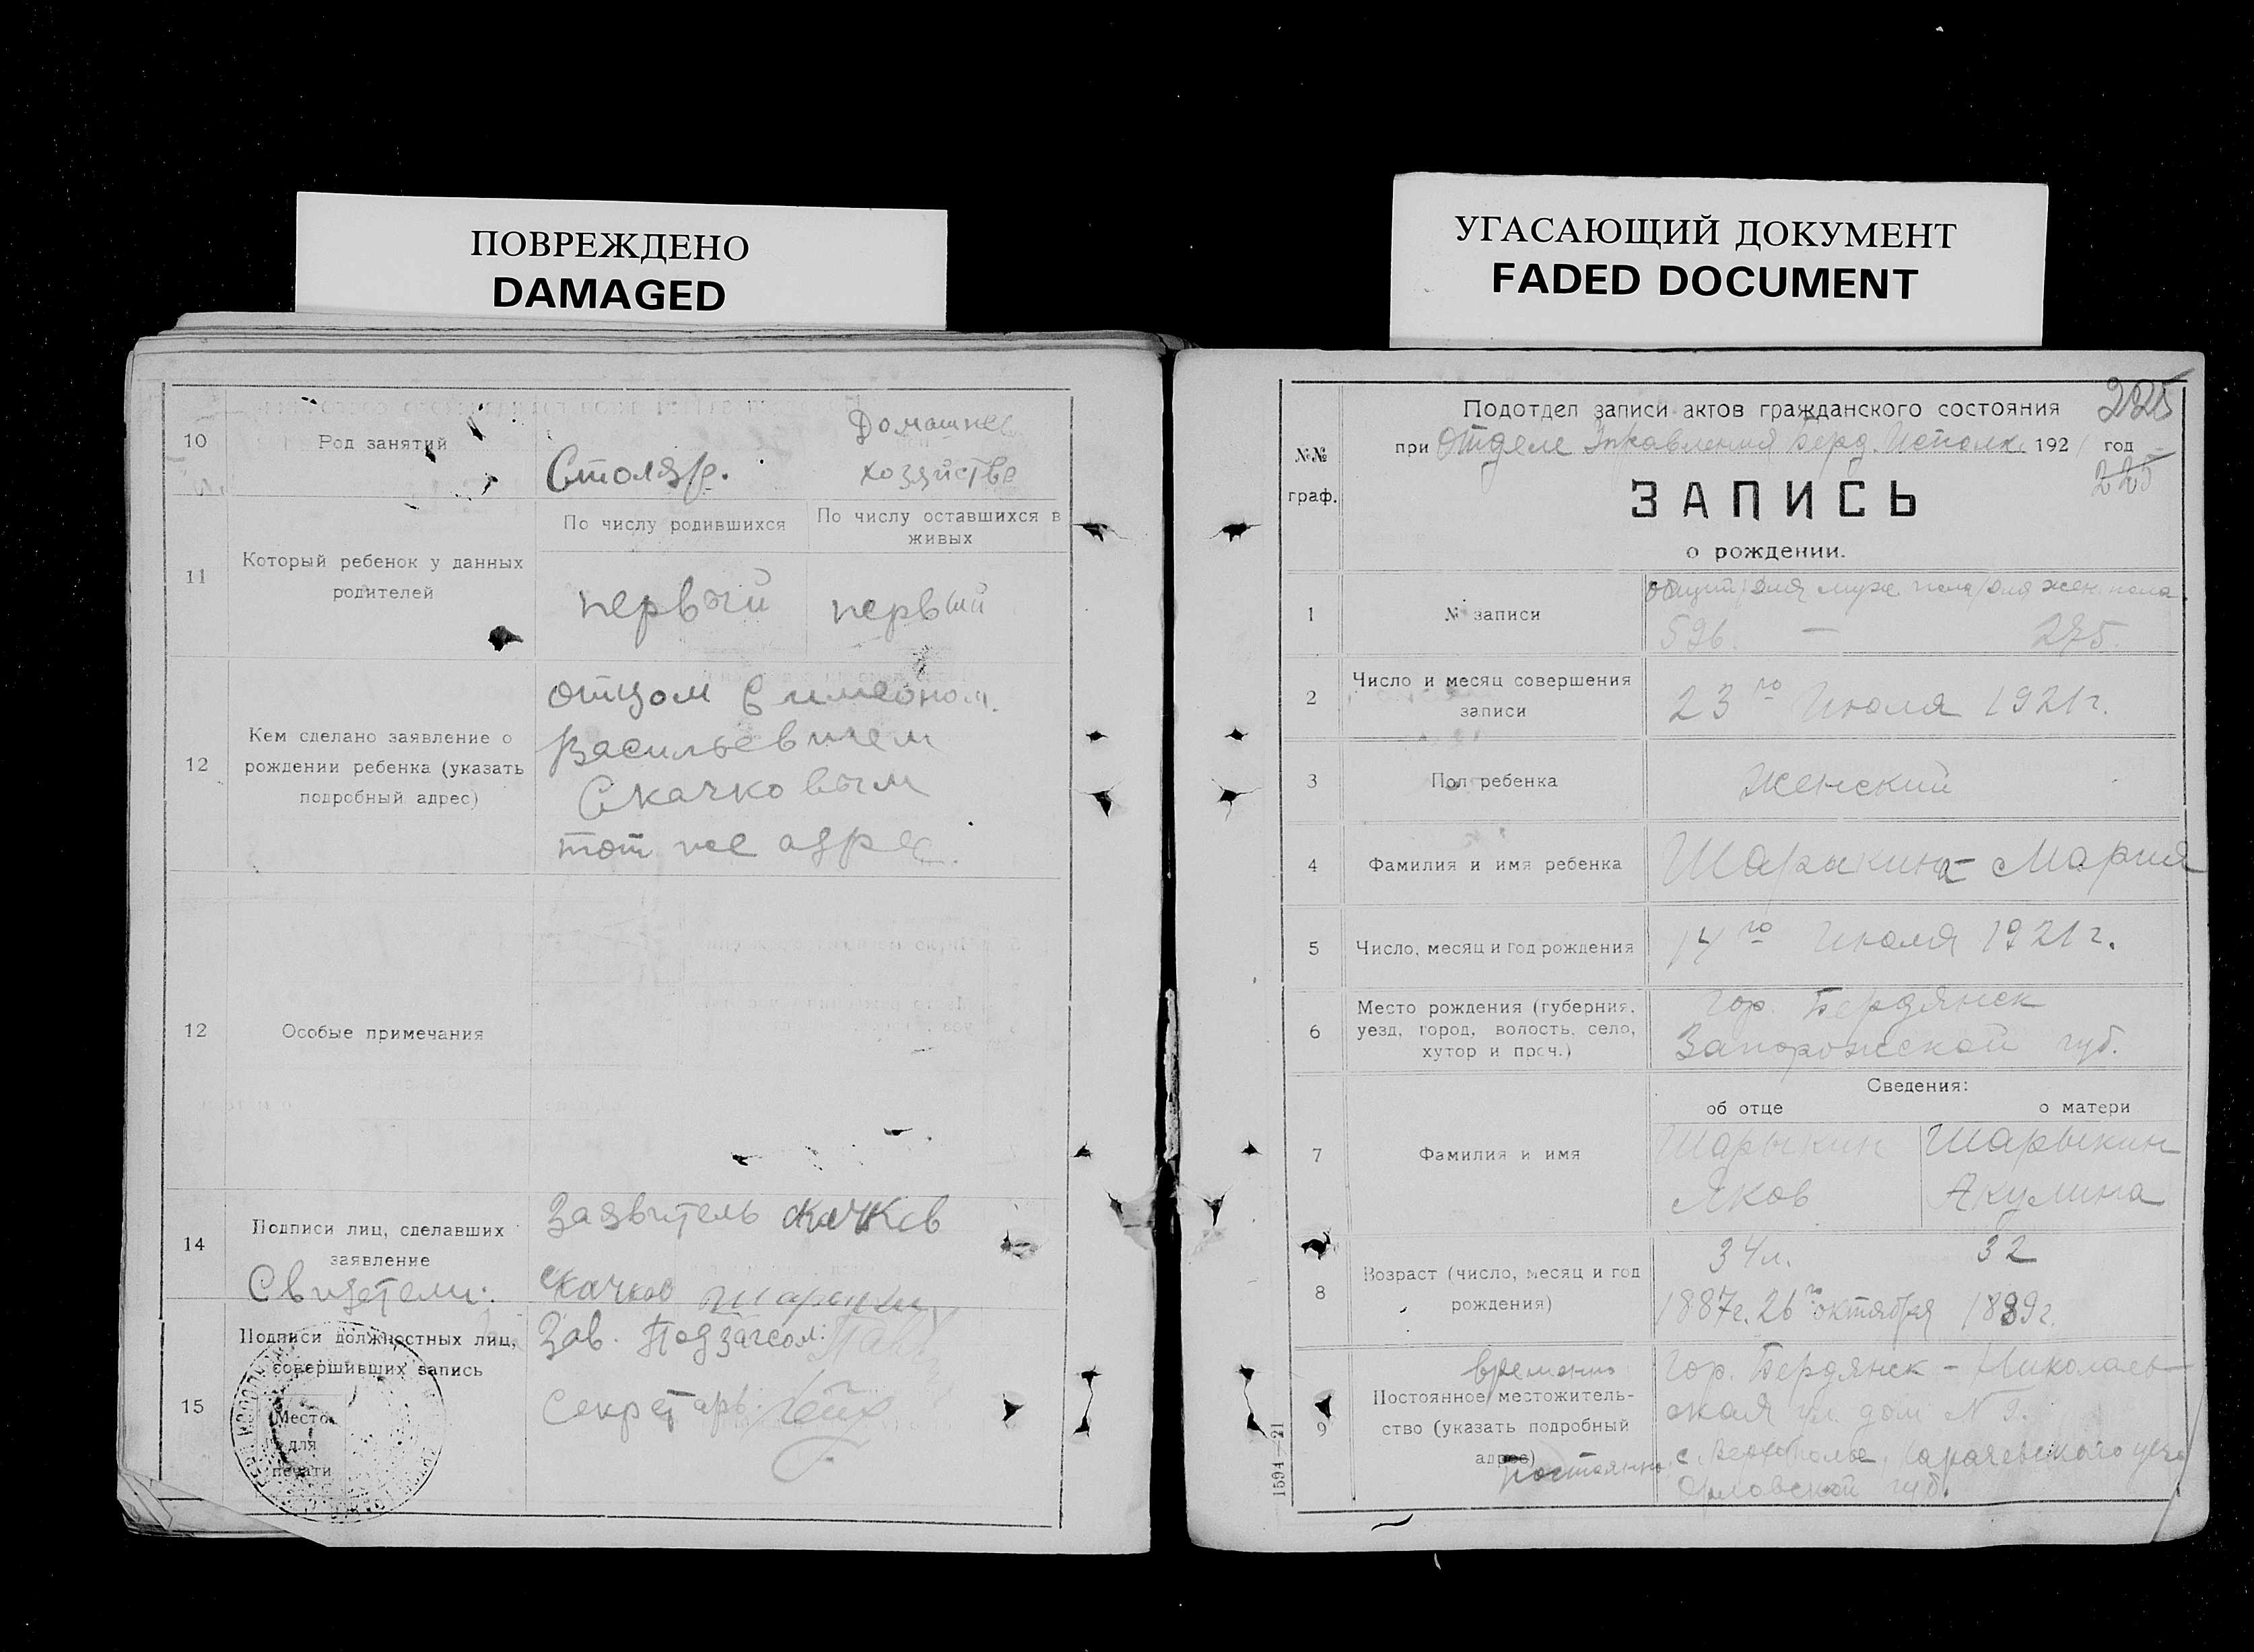 ПОВРЕЖДЕНО
DAMAGED
УГАСАЮЩИЙ ДОКУМЕНТ
FADED DOCUMENT
10
Род занятий
Столяр.
Домашнее
хозяйстве
11
Который ребенок у данных
родителей
По числу родившихся
По числу оставшихся в
живых
первый
первый
12
Кем сделано заявление о
рождении ребенка (указать
подробный адрес)
отцом Симеоном
Васильевичем
Скачковым
тот же адрес.
12
Особые примечания
14
Подписи лиц, сделавших
заявление
Свидетели:
Заявитель Скачков
Скачков
15
Подписи должностных лиц,
совершивших запись
Место
для
печати
Зав. Подзагсом:
Секретарь:
225
№№
граф.
Подотдел записи актов гражданского состояния
при Отделе Управления Берд. Исполк. 1921 год
225
ЗАПИСЬ
о рождении.
1
№ записи
общий/для муж. пола/для жен. пола
596. — 275.
2
Число и месяц совершения
записи
23го Июля 1921г.
3
Пол ребенка
Женский
4
Фамилия и имя ребенка
Шарыкина Мария
5
Число, месяц и год рождения
14го Июля 1921г.
6
Место рождения (губерния,
уезд, город, волость, село,
хутор и проч.)
Гор. Бердянск
Запорожской губ.
Сведения:
об отце
о матери
7
Фамилия и имя
Шарыкин
Яков
Шарыкин
Акулина
8
Возраст (число, месяц и год
рождения)
34л.
1887г. 26го октября
32
1889г.
9
временно
Постоянное местожитель-
ство (указать подробный
адрес)
постоянно
Гор. Бердянск - Николаев-
ская ул. дом N 9.
с. Карачевского уезда
Орловской губ.
1594—21